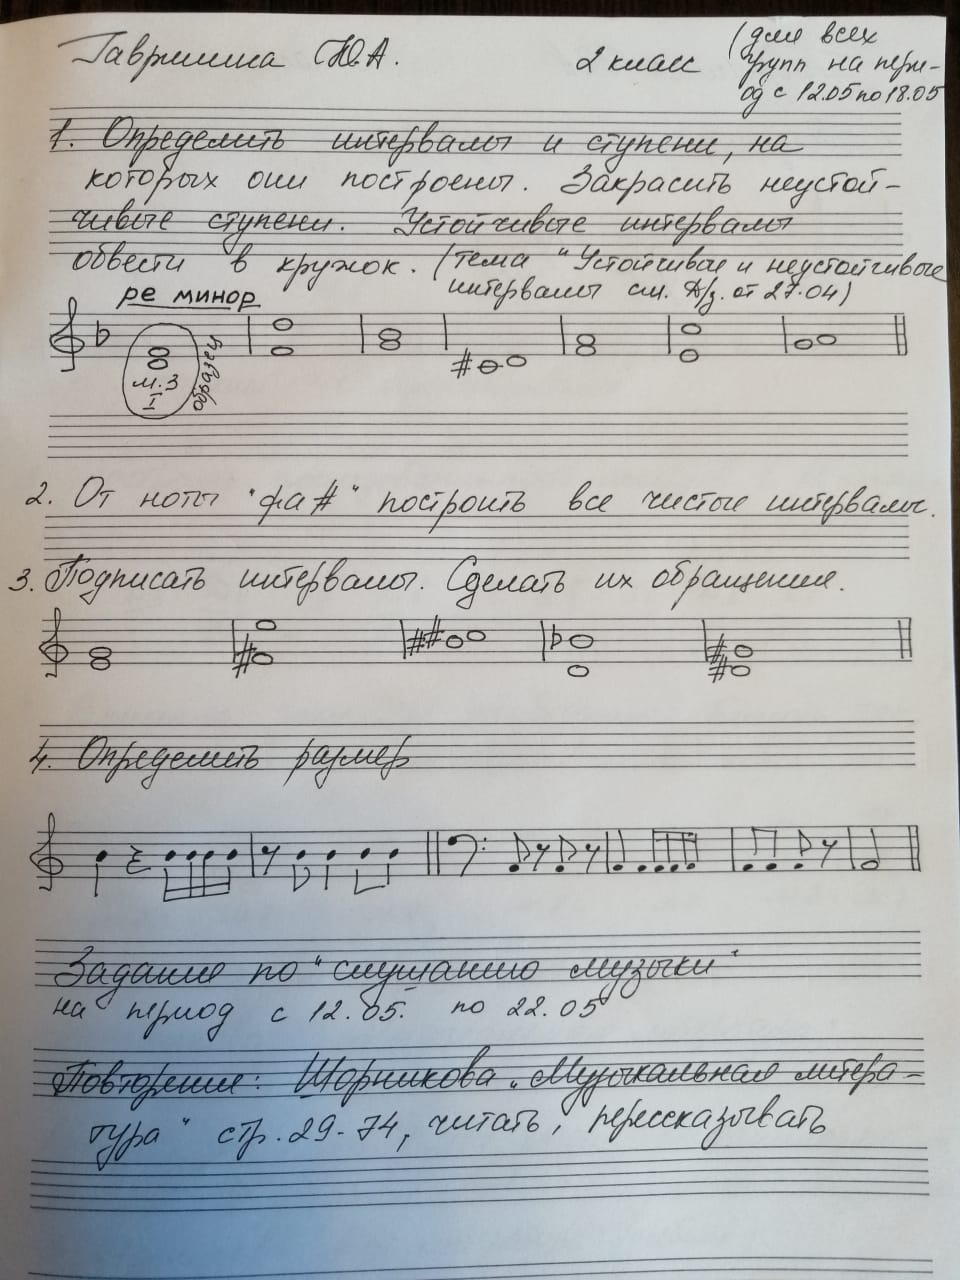 Гавришина Ю.А.
2 класс (для всех
групп на пери-
од с 12.05 по 18.05
1. Определить интервалы и ступени, на
которых они построены. Закрасить неустой-
чивые ступени. Устойчивые интервалы
обвести в кружок. (тема "Устойчивые и неустойчивые
интервалы см. Д/з. от 27.04)
ре минор
м.3
I
образец
2. От ноты "фа#" построить все чистые интервалы.
3. Подписать интервалы. Сделать их обращения.
4. Определить размер
Задание по "слушанию музыки"
на период с 12.05. по 22.05
Повторение: Шорникова "Музыкальная литера-
тура" стр. 29-74, читать, перессказывать